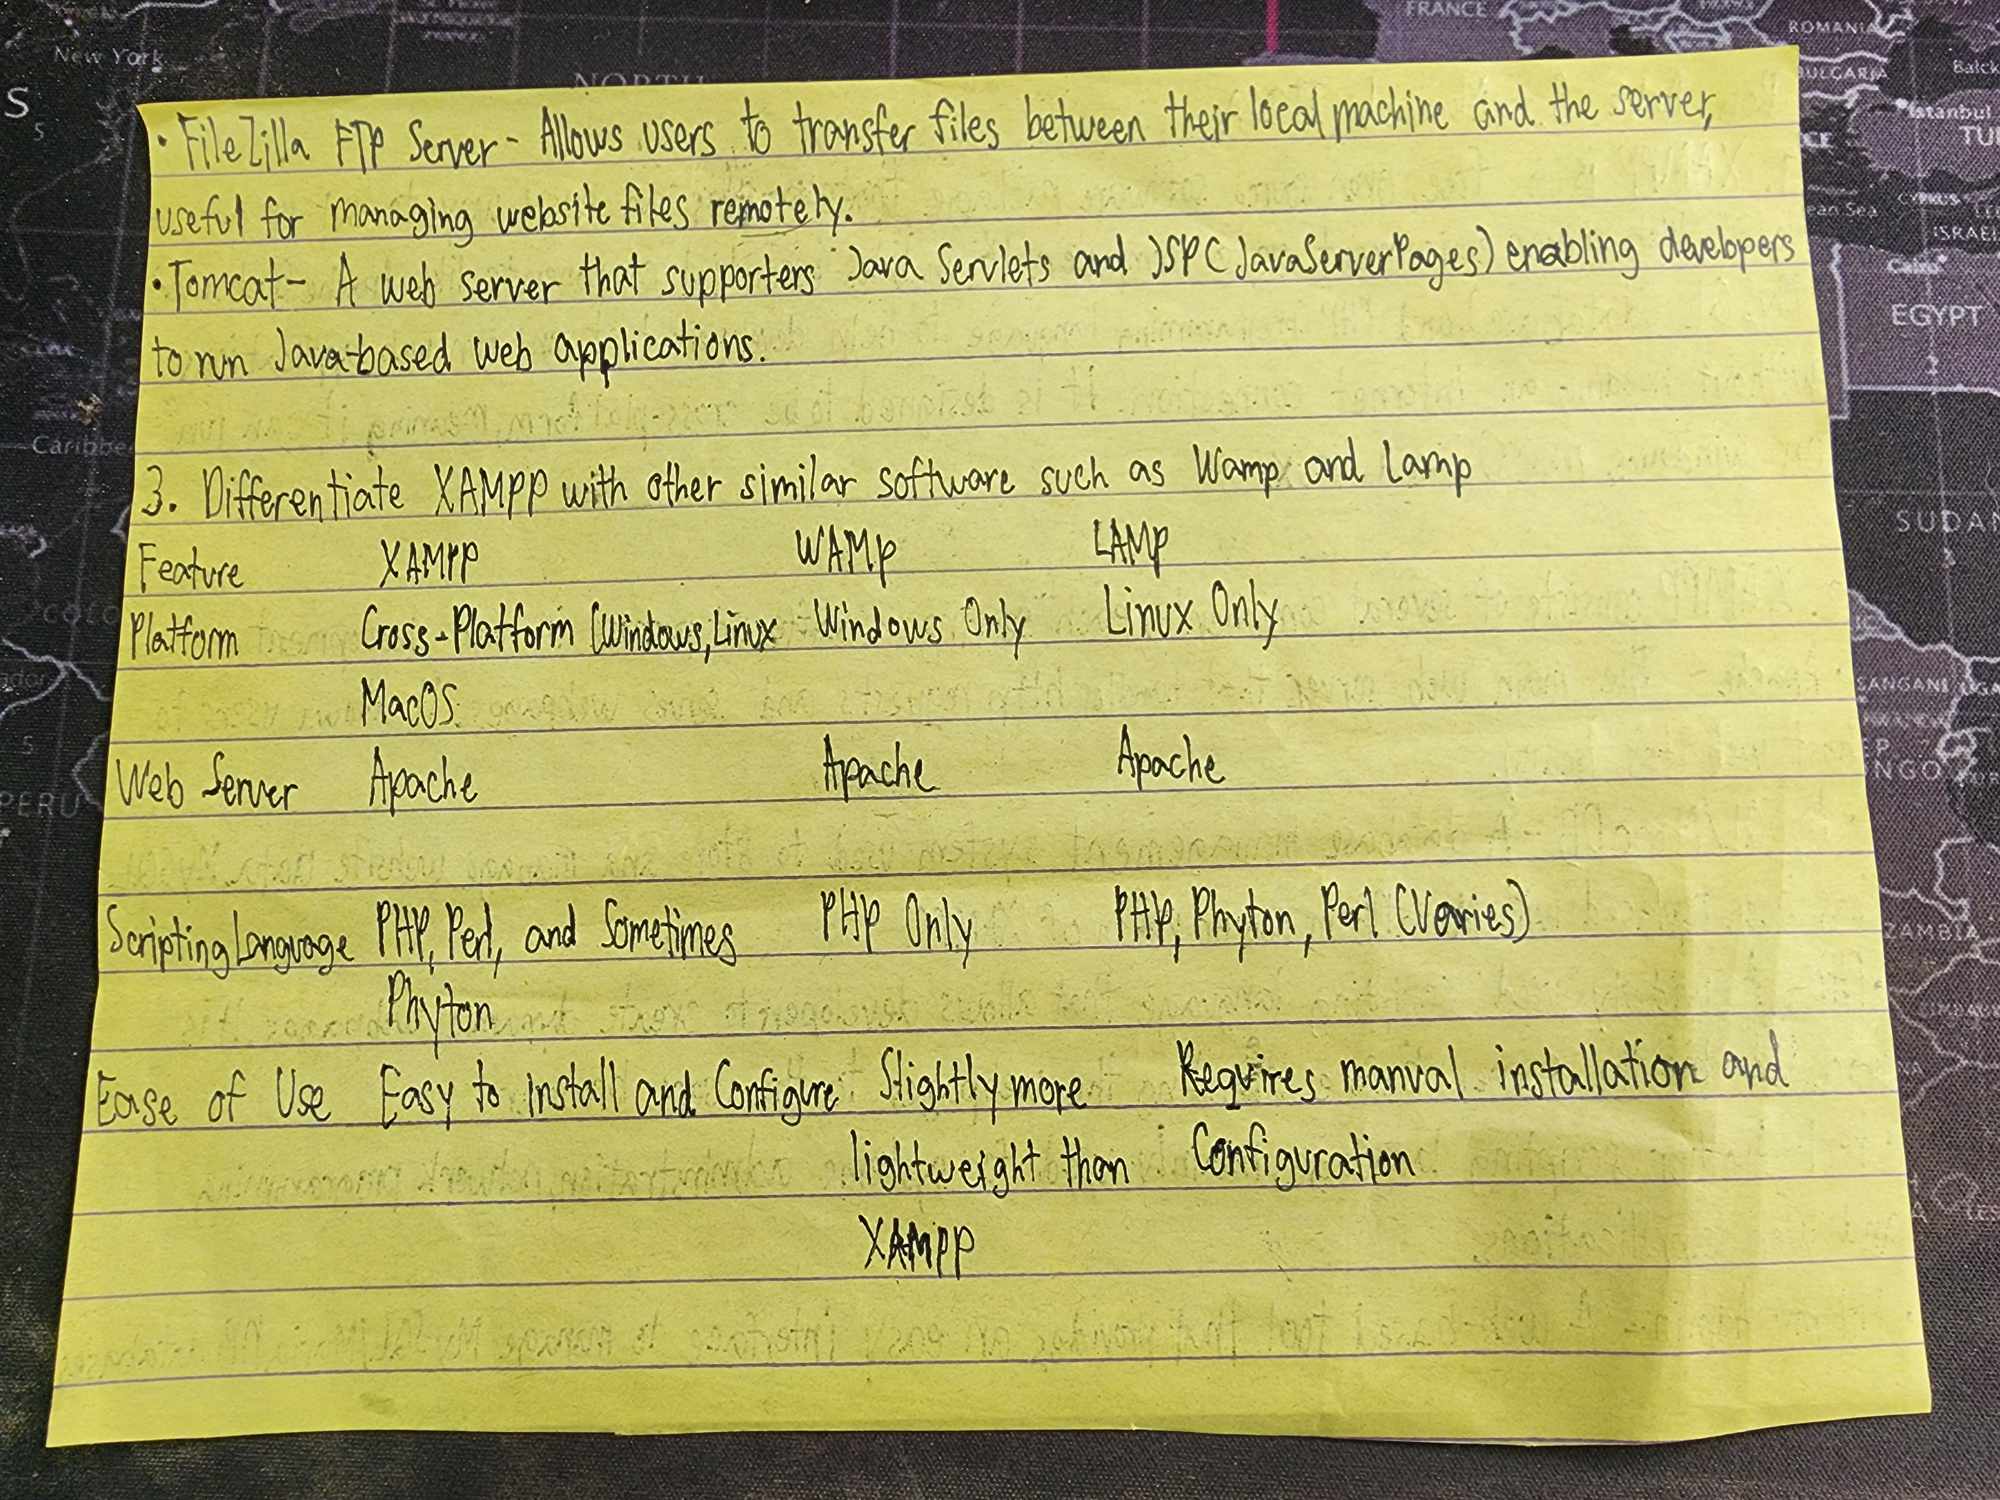 • FileZilla FTP Server - Allows users to transfer files between their local machine and the server,
useful for managing website files remotely.
• Tomcat - A web server that supporters Java Servlets and JSP (JavaServerPages) enabling developers
to run Java-based web applications.
3. Differentiate XAMPP with other similar software such as Wamp and Lamp
Feature XAMPP WAMP LAMP
Platform Cross-Platform (Windows, Linux Windows Only Linux Only
MacOS
Web Server Apache Apache Apache
Scripting Language PHP, Perl, and Sometimes PHP Only PHP, Phyton, Perl (Varies)
Phyton
Ease of Use Easy to Install and Configure Slightly more Requires manual installation and
lightweight than Configuration
XAMPP
New York
NORTH
FRANCE
ROMANIA
BULGARIA
Istanbul
CYPRUS
ISRAEL
EGYPT
SUDAN
PERU
ZAMBIA